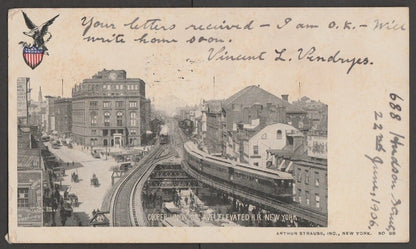 Your letters recieved - I am O.K. - Will
write home soon.
Vincent L. Vendryes.
688 Hudson Street,
22nd June, 1906.
COOPER UNION & AVE. ELEVATED R.R. NEW YORK
ARTHUR STRAUSS, INC., NEW YORK. NO 28